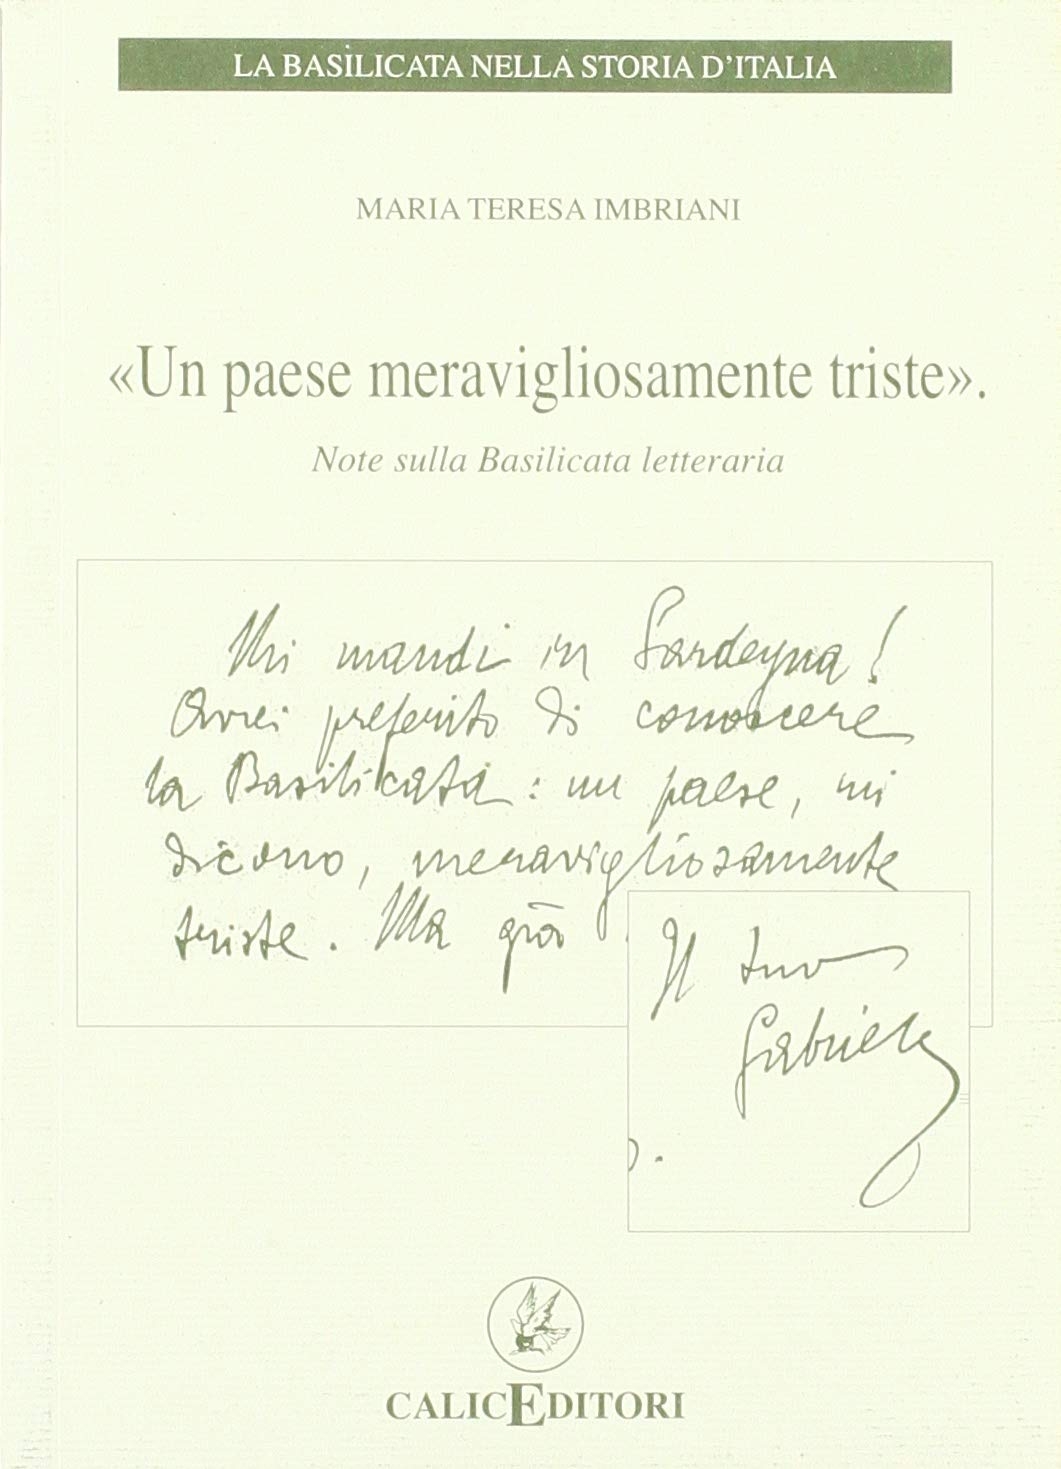 LA BASILICATA NELLA STORIA D'ITALIA
MARIA TERESA IMBRIANI
«Un paese meravigliosamente triste».
Note sulla Basilicata letteraria
Mi mandi in Sardegna!
Avrei preferito di conoscere
la Basilicata: un paese, mi
dicono, meravigliosamente
triste. Ma già
Il tuo
Gabriele
CALICEDITORI